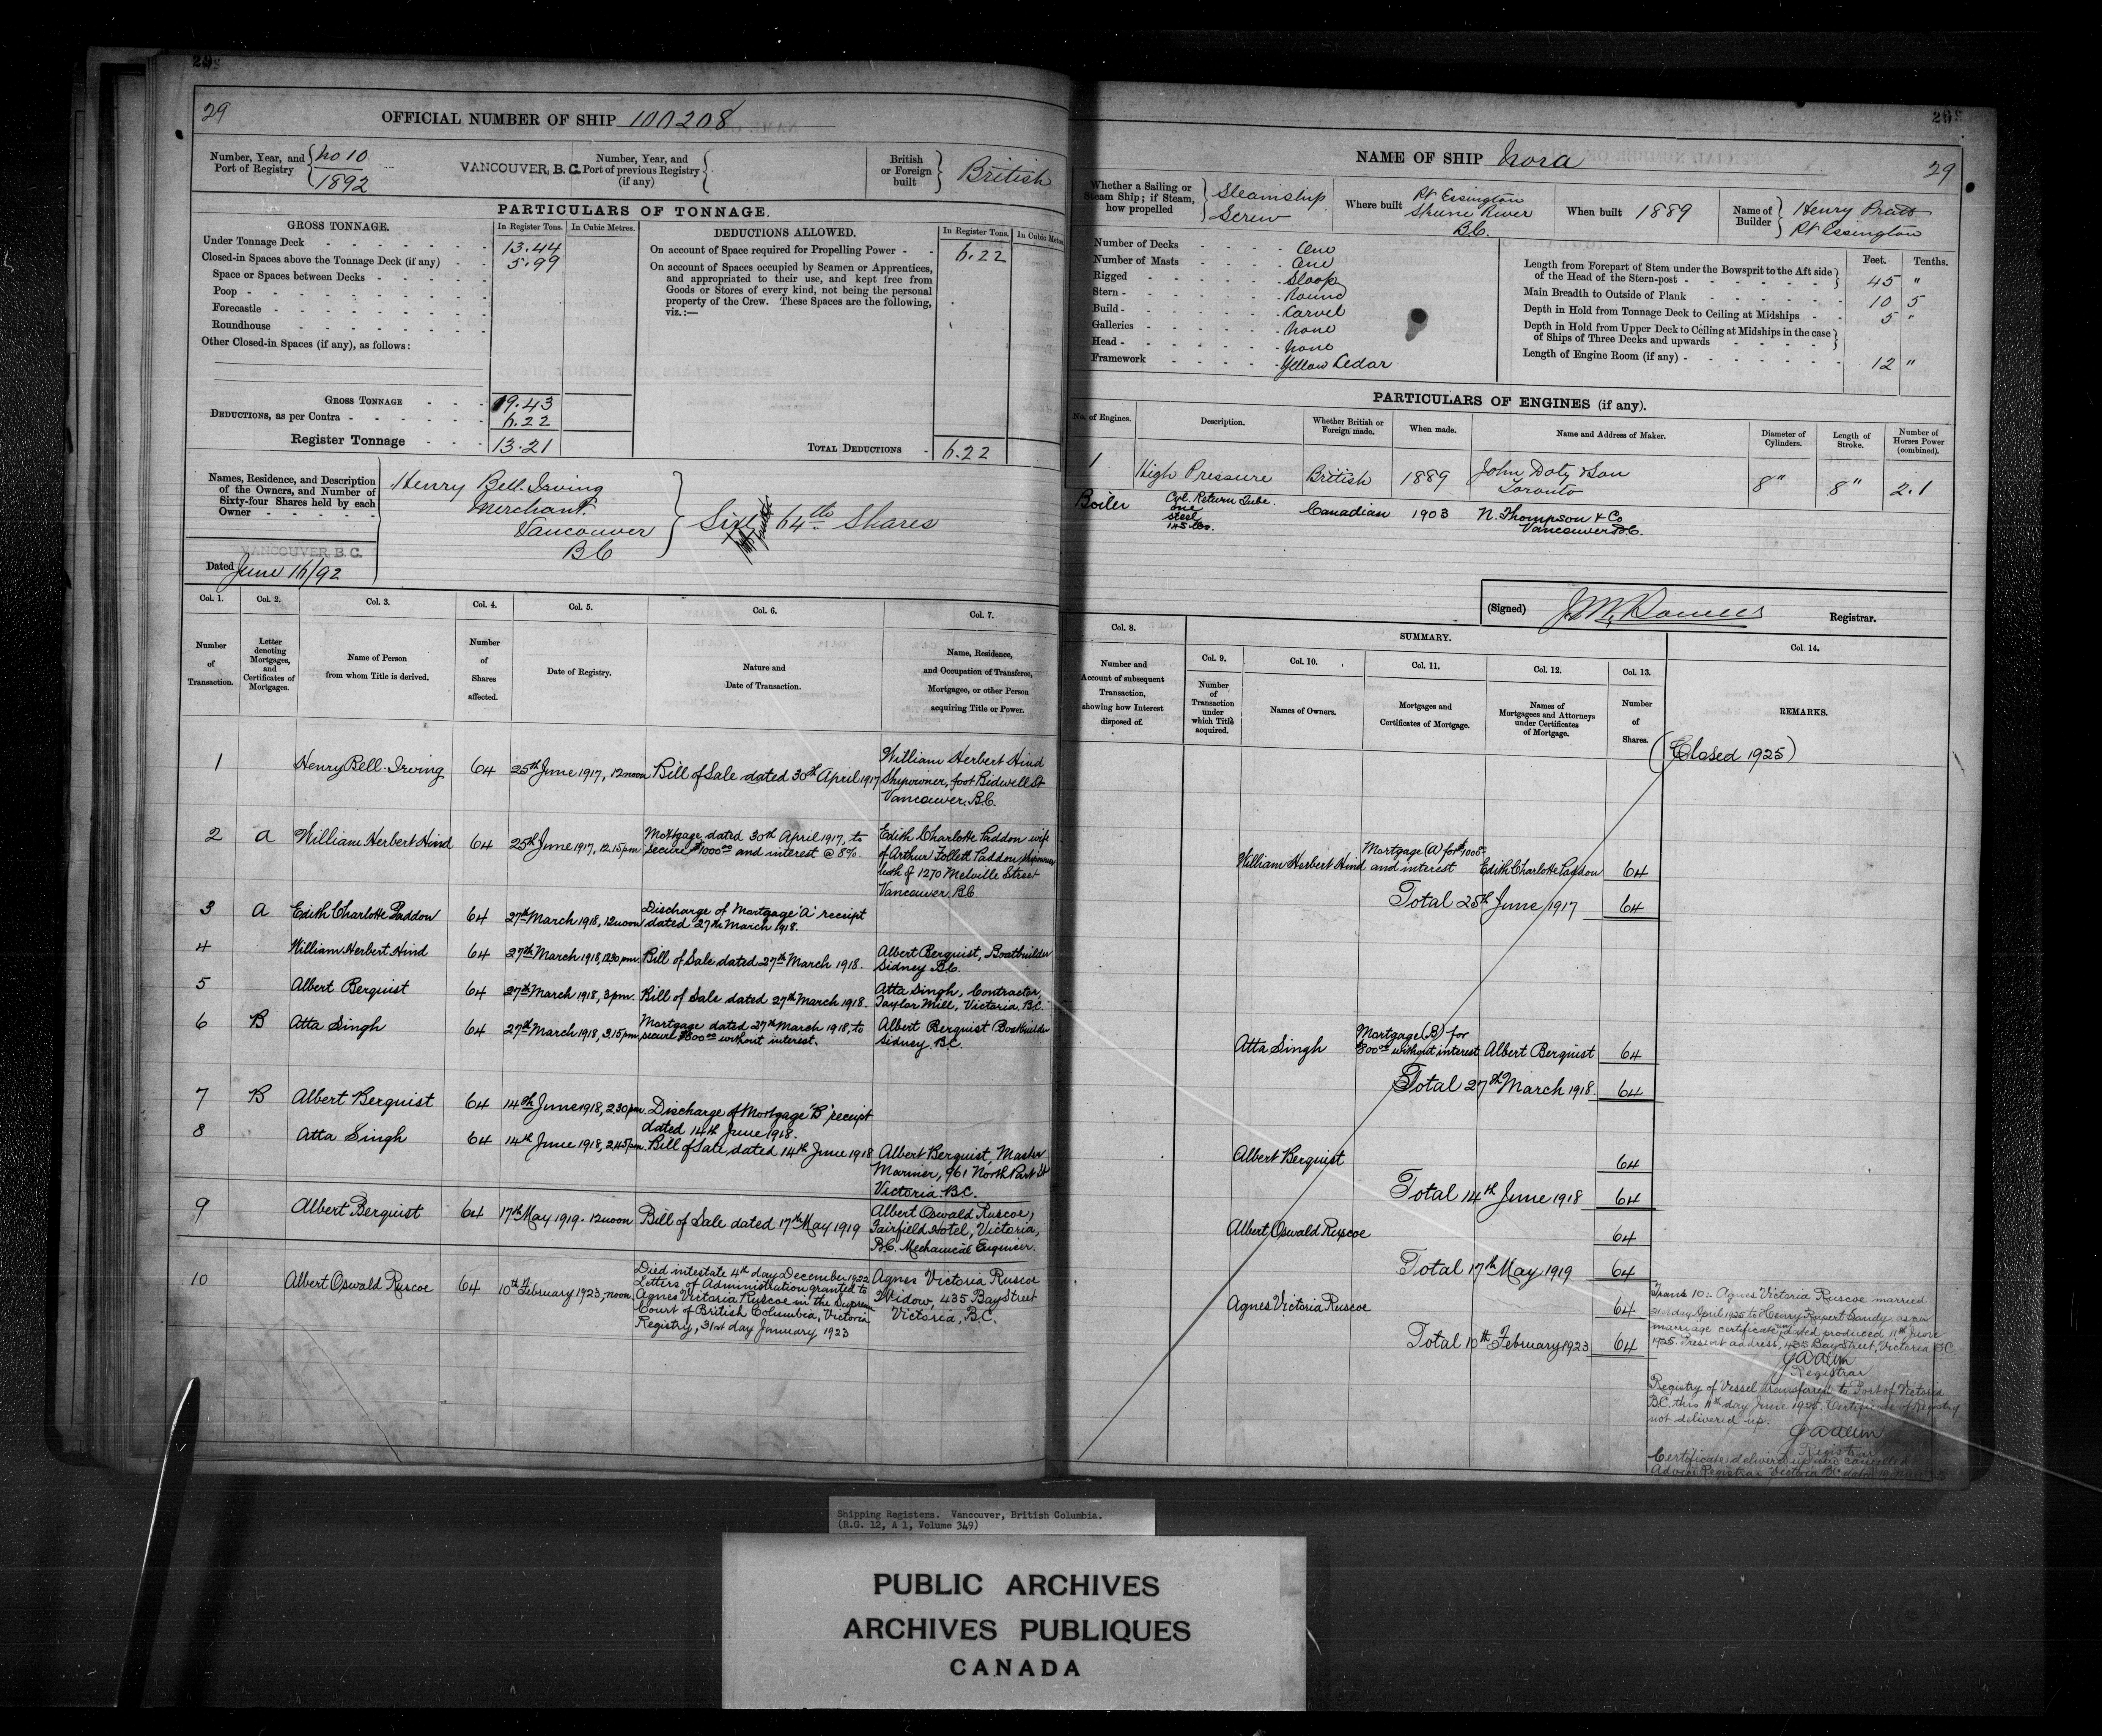 29
OFFICIAL NUMBER OF SHIP 100208
Number, Year, and Port of Registry
No 10
1892
VANCOUVER, B.C.
Number, Year, and Port of previous Registry (if any)
British or Foreign built
British
PARTICULARS OF TONNAGE.
GROSS TONNAGE.
In Register Tons.
In Cubic Metres.
Under Tonnage Deck 13.44
Closed-in Spaces above the Tonnage Deck (if any) 5.99
Space or Spaces between Decks
Poop
Forecastle
Roundhouse
Other Closed-in Spaces (if any), as follows:
GROSS TONNAGE 19.43
DEDUCTIONS, as per Contra 6.22
Register Tonnage 13.21
DEDUCTIONS ALLOWED.
In Register Tons.
In Cubic Metres
On account of Space required for Propelling Power 6.22
On account of Spaces occupied by Seamen or Apprentices,
and appropriated to their use, and kept free from
Goods or Stores of every kind, not being the personal
property of the Crew. These Spaces are the following,
viz.:—
TOTAL DEDUCTIONS 6.22
Names, Residence, and Description
of the Owners, and Number of
Sixty-four Shares held by each
Owner
Henry Bell-Irving
Merchant
Vancouver
BC
64th Shares
VANCOUVER, B.C.
Dated June 16/92
Col. 1.
Number of Transaction.
Col. 2.
Letter denoting Mortgages, and Certificates of Mortgages.
Col. 3.
Name of Person from whom Title is derived.
Col. 4.
Number of Shares affected.
Col. 5.
Date of Registry.
Col. 6.
Nature and Date of Transaction.
Col. 7.
Name, Residence, and Occupation of Transferee, Mortgagee, or other Person acquiring Title or Power.
1 Henry Bell-Irving 64 25th June 1917, 12 noon Bill of Sale dated 30th April 1917
William Herbert Hind
Shipowner, foot Bidwell St
Vancouver, B.C.
2 A William Herbert Hind 64 25th June 1917, 12.15 pm
Mortgage dated 30th April 1917, to
secure $1000.00 and interest @ 8%.
Edith Charlotte Paddon wife
of Arthur Follett Paddon shipowner
both of 1270 Melville Street
Vancouver B.C.
3 A Edith Charlotte Paddon 64 27th March 1918, 12 noon
Discharge of Mortgage "A" receipt
dated 27th March 1918.
4 William Herbert Hind 64 27th March 1918, 12.30 pm. Bill of Sale dated 27th March 1918.
Albert Berquist, Boatbuilder
Sidney B.C.
5 Albert Berquist 64 27th March 1918, 3 pm. Bill of Sale dated 27th March 1918.
Atta Singh, Contractor,
Taylor Mill, Victoria, B.C.
6 B Atta Singh 64 27th March 1918, 3.15 pm
Mortgage dated 27th March 1918, to
secure $800.00 without interest.
Albert Berquist Boatbuilder
Sidney, B.C.
7 B Albert Berquist 64 14th June 1918, 2.30 pm. Discharge of Mortgage "B" receipt
dated 14th June 1918.
8 Atta Singh 64 14th June 1918, 2.45 pm. Bill of Sale, dated 14th June 1918
Albert Berquist, Master
Mariner, 961 North Park St
Victoria, B.C.
9 Albert Berquist 64 17th May 1919. 12 noon Bill of Sale dated 17th May 1919
Albert Oswald Ruscoe,
Fairfield Hotel, Victoria,
B.C. Mechanical Engineer.
10 Albert Oswald Ruscoe 64 10th February 1923, noon.
Died intestate 4th day December 1922
Letters of Administration granted to
Agnes Victoria Ruscoe in the Supreme
Court of British Columbia, Victoria
Registry, 31st day January 1923
Agnes Victoria Ruscoe
Widow, 435 Bay Street
Victoria, B.C.
NAME OF SHIP Nora
29
Whether a Sailing or Steam Ship; if Steam, how propelled
Steamship
Screw
Where built
Pt Essington
Skeene River
B.C.
When built 1889
Name of Builder
Henry Pratt
Pt Essington
Number of Decks One
Number of Masts One
Rigged Sloop
Stern Round
Build Carvel
Galleries None
Head None
Framework Yellow Cedar
Feet. Tenths.
Length from Forepart of Stem under the Bowsprit to the Aft side
of the Head of the Stern-post 45 "
Main Breadth to Outside of Plank 10 5
Depth in Hold from Tonnage Deck to Ceiling at Midships 5 "
Depth in Hold from Upper Deck to Ceiling at Midships in the case
of Ships of Three Decks and upwards
Length of Engine Room (if any) 12 "
PARTICULARS OF ENGINES (if any).
No. of Engines.
Description.
Whether British or Foreign made.
When made.
Name and Address of Maker.
Diameter of Cylinders.
Length of Stroke.
Number of Horses Power (combined).
1 High Pressure British 1889 John Doty & Son
Toronto
8" 8" 2.1
Boiler Cyl. Return Tube.
one
steel
Canadian 1903 N. Thompson & Co
Vancouver B.C.
(Signed) Registrar.
Col. 8.
Number and Account of subsequent Transaction, showing how Interest disposed of.
SUMMARY.
Col. 9.
Number of Transaction under which Title acquired.
Col. 10.
Names of Owners.
Col. 11.
Mortgages and Certificates of Mortgage.
Col. 12.
Names of Mortgagees and Attorneys under Certificates of Mortgage.
Col. 13.
Number of Shares.
Col. 14.
REMARKS.
(Closed 1925)
William Herbert Hind Mortgage (A) for $1000.00 and interest Edith Charlotte Paddon 64
Total 25th June 1917 64
Atta Singh Mortgage (B) for 800.00 without interest Albert Berquist 64
Total 27th March 1918. 64
Albert Berquist 64
Total 14th June 1918 64
Albert Oswald Ruscoe 64
Total 17th May 1919 64
Agnes Victoria Ruscoe 64
Total 10th February 1923 64
Trans 10:. Agnes Victoria Ruscoe married
21st day April 1925 to Henry Rupert Gandy as per
marriage certificate dated produced 11th June
1925. Present address, 435 Bay Street, Victoria B.C.
Registrar
Registry of Vessel transferred to Port of Victoria
B.C. this 11th day June 1925. Certificate of Registry
not delivered up.
Registrar
Certificate delivered up and cancelled
Advice Registrar Victoria B.C.
Shipping Registers. Vancouver, British Columbia.
(R.G. 12, A 1, Volume 349)
PUBLIC ARCHIVES
ARCHIVES PUBLIQUES
CANADA